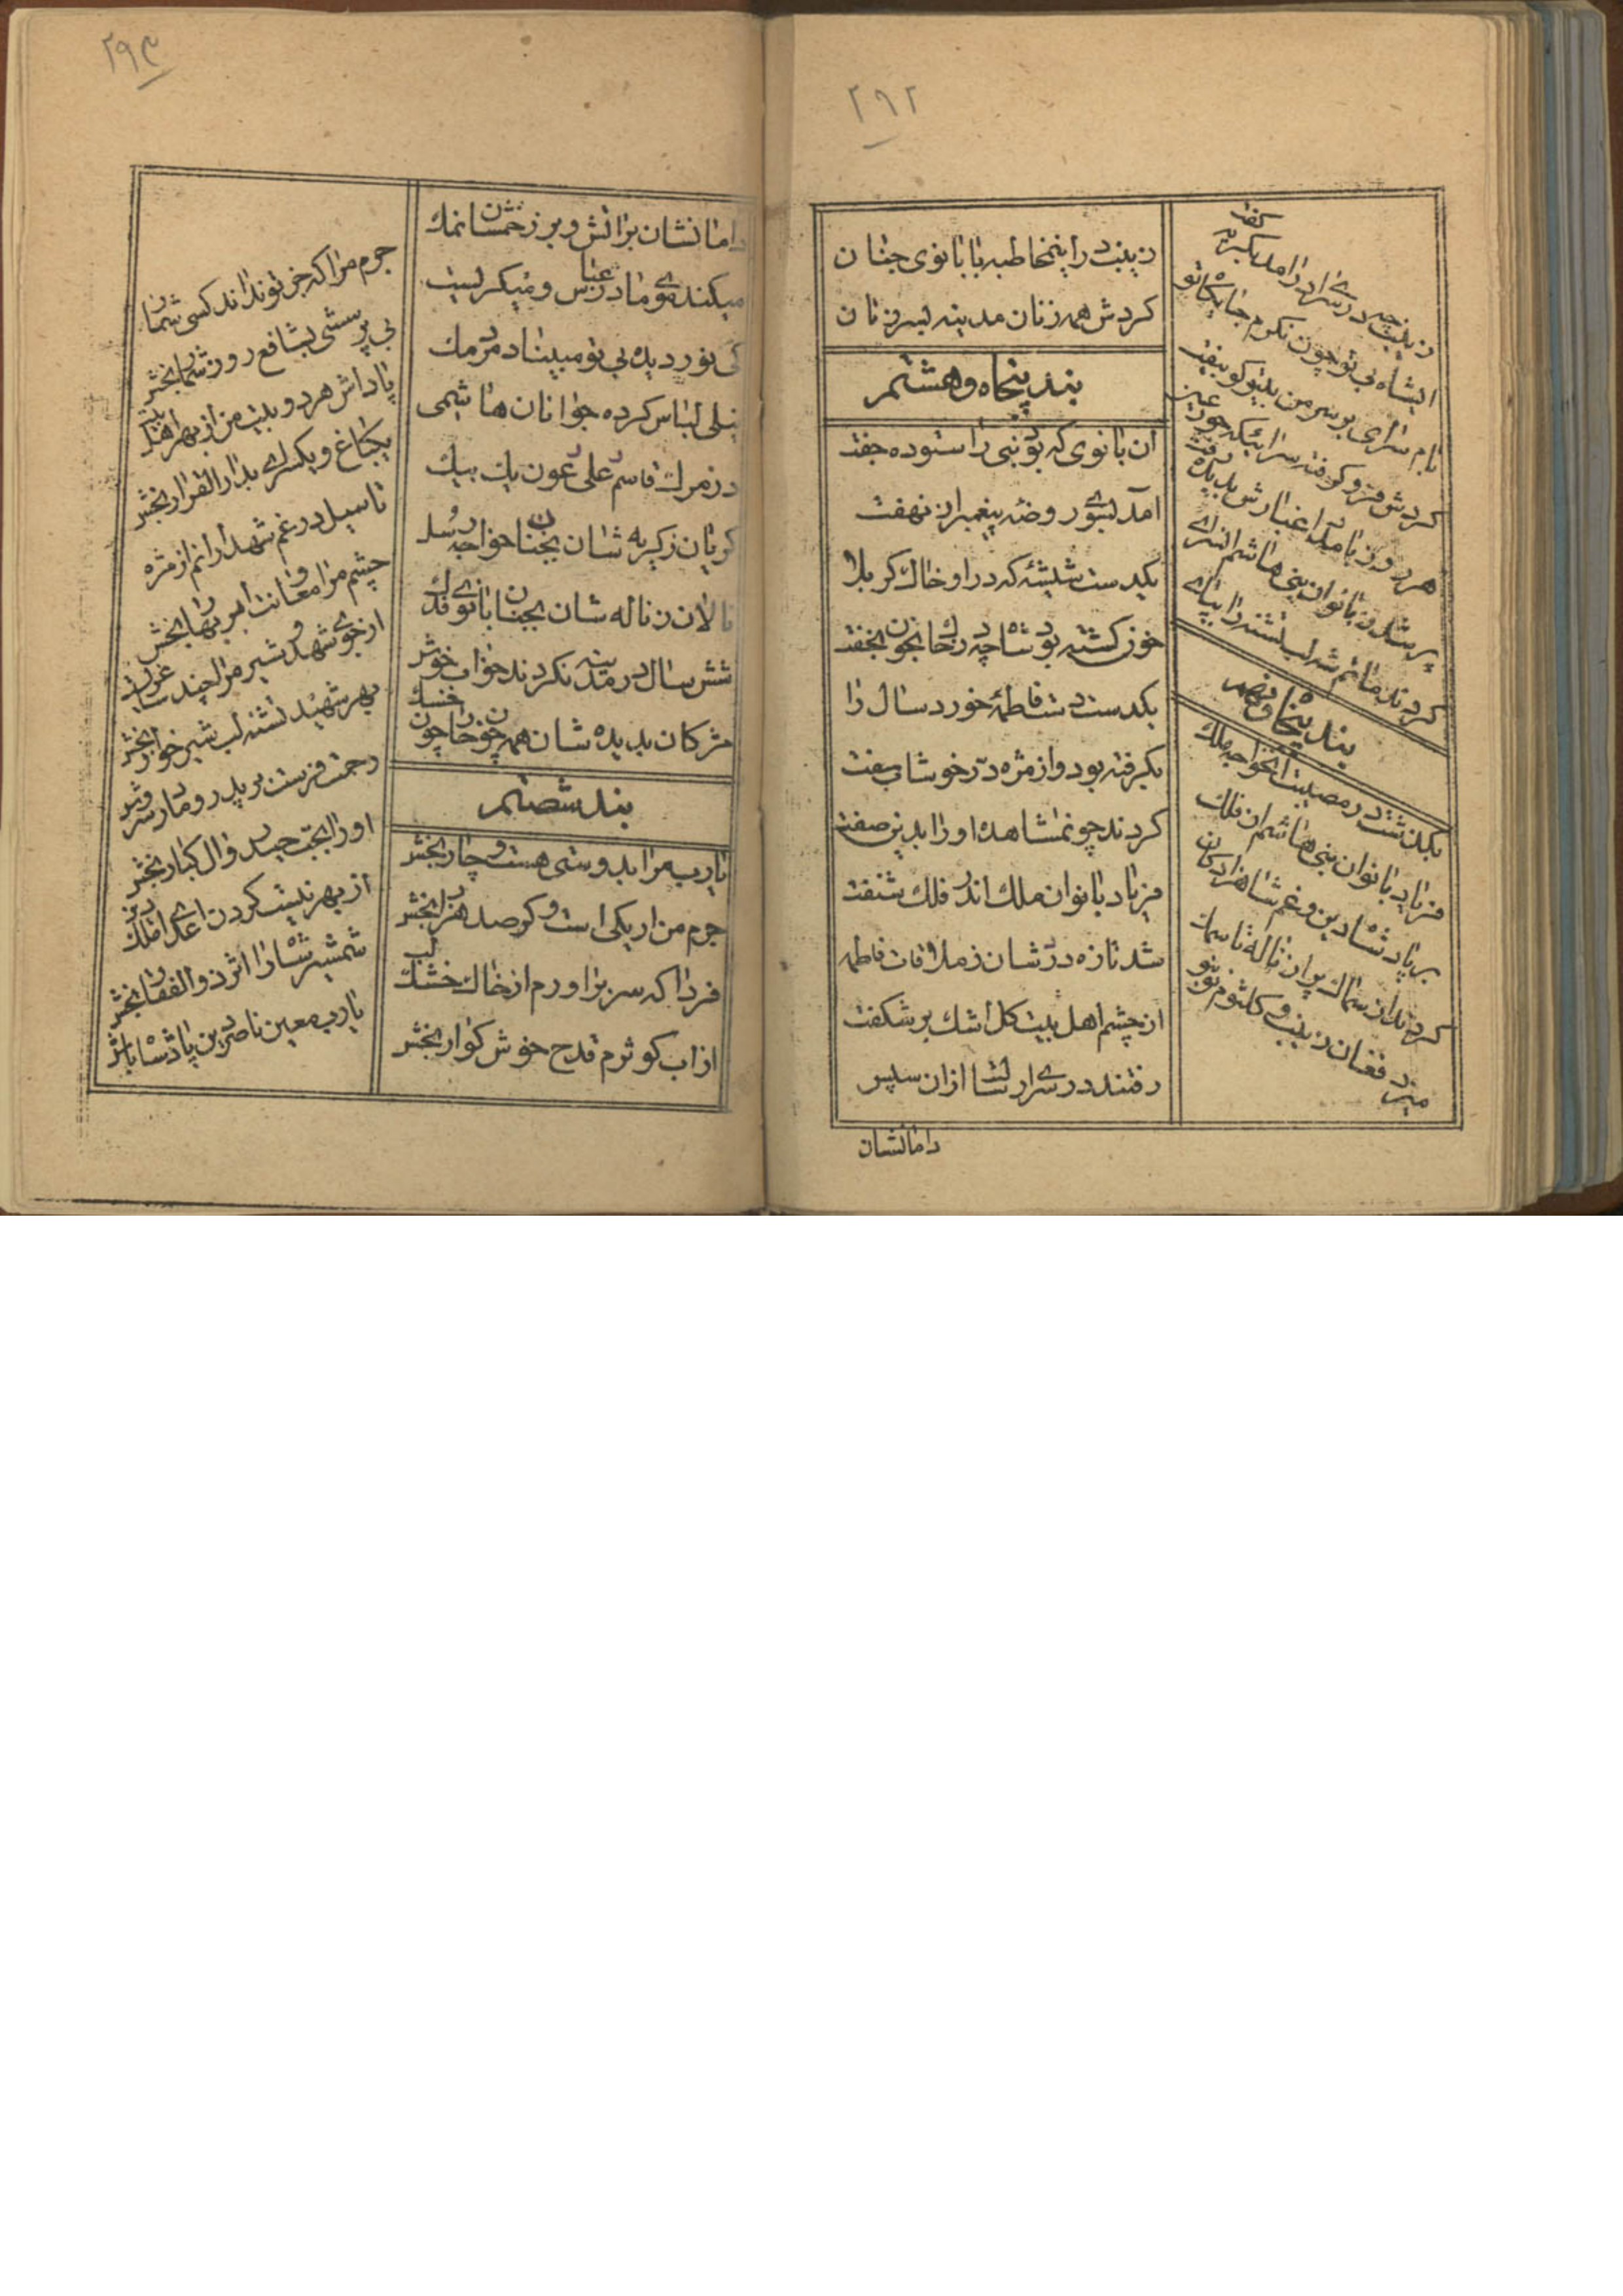 ۲۹۲
زینب در اینمخاطبه با بانوی جنان
کردش همه زنان مدینه بسر زنان
بند پنجاه و هشتم
ان بانوی که بود نبی را ستوده جفت
امد بسوی روضه پیغمبران نهفت
یکدست شیشهٔ که در او خاک کربلا
خون کشته بود شاه چو در خاک و خون بخفت
یکدست دست فاطمهٔ خورد سال را
بگرفته بود و از مژه در خوشاب سفت
کردند چون مشاهده او را بدین صفت
فریاد بانوان ملک اندر فلک شنفت
شد تازه درد شان ز ملاقات فاطمه
از چشم اهل بیت کل اشک بر شکفت
رفتند در سرای رسالت ازان سپس
زینب چه در سرای در امد بکریه کفت
ایشاه بی تو چون نکرم جایکاه تو
بام سرای بر سر من بیتو کو بیفت
کردش فرو کوفته سرائیکه حور عین
هر روز بامداد غبارش بدیده رفت
پر شد ز بانوان بنی هاشم انسرای
کردند ماتم شه لب تشنه را بپای
بند پنجاه و نهم
بگذشت در مصیبت انخواجه ملک
فریاد بانوان بنی هاشم از فلک
بر یاد شاه دین و غم شاهزادکان
کردند از سماک پر از ناله تا سمک
میزد فغان زینب و کلثوم نو بنو
دامانشان
۲۹۳
دامانشان بر اتش و بر زخمشان نمک
میکند موی مادر عباس و میکریست
کی نور دیده بی تو مبیناد مردمک
نیلی لباس کرده جوانان هاشمی
در مرک قاسم و علی و عون یک بیک
کریان ز کریه شان بجنان خواجه رسل
نالان ز ناله شان بجنان بانوی فدک
شش سال در مدینه نکردند خواب خوش
مژکان بدیده شان همه چون خار چون خسک
بند شصتم
یارب مرا بدوستی هشت و چار بخش
جرم من ار یکی است و کر صد هزار بخش
فردا که سر بر اورم از خاک خشک لب
از اب کوثرم قدح خوش کوار بخش
جرم مرا که جز تو نداند کسی شمار
بی پرسشی بشافع روز شمار بخش
پاداش هر دو بیت من از بهر اهل بیت
یکباغ و یکسرای بدار القرار بخش
تا سیل در غم شهدا رانم از مژه
چشم مرا معاونت ابر بهار بخش
از جوی شهد و شیر مرا چند ساغری
بهر شهید تشنه لب شیر خوار بخش
رحمت فرست بر پدر و مادر سروش
او را بحق حیدر و ال کبار بخش
از بهر نیست کردن اعدای ملک و دین
شمشیر شاه را اثر ذو الفقار بخش
یارب معین ناصر دین پادشاه باش